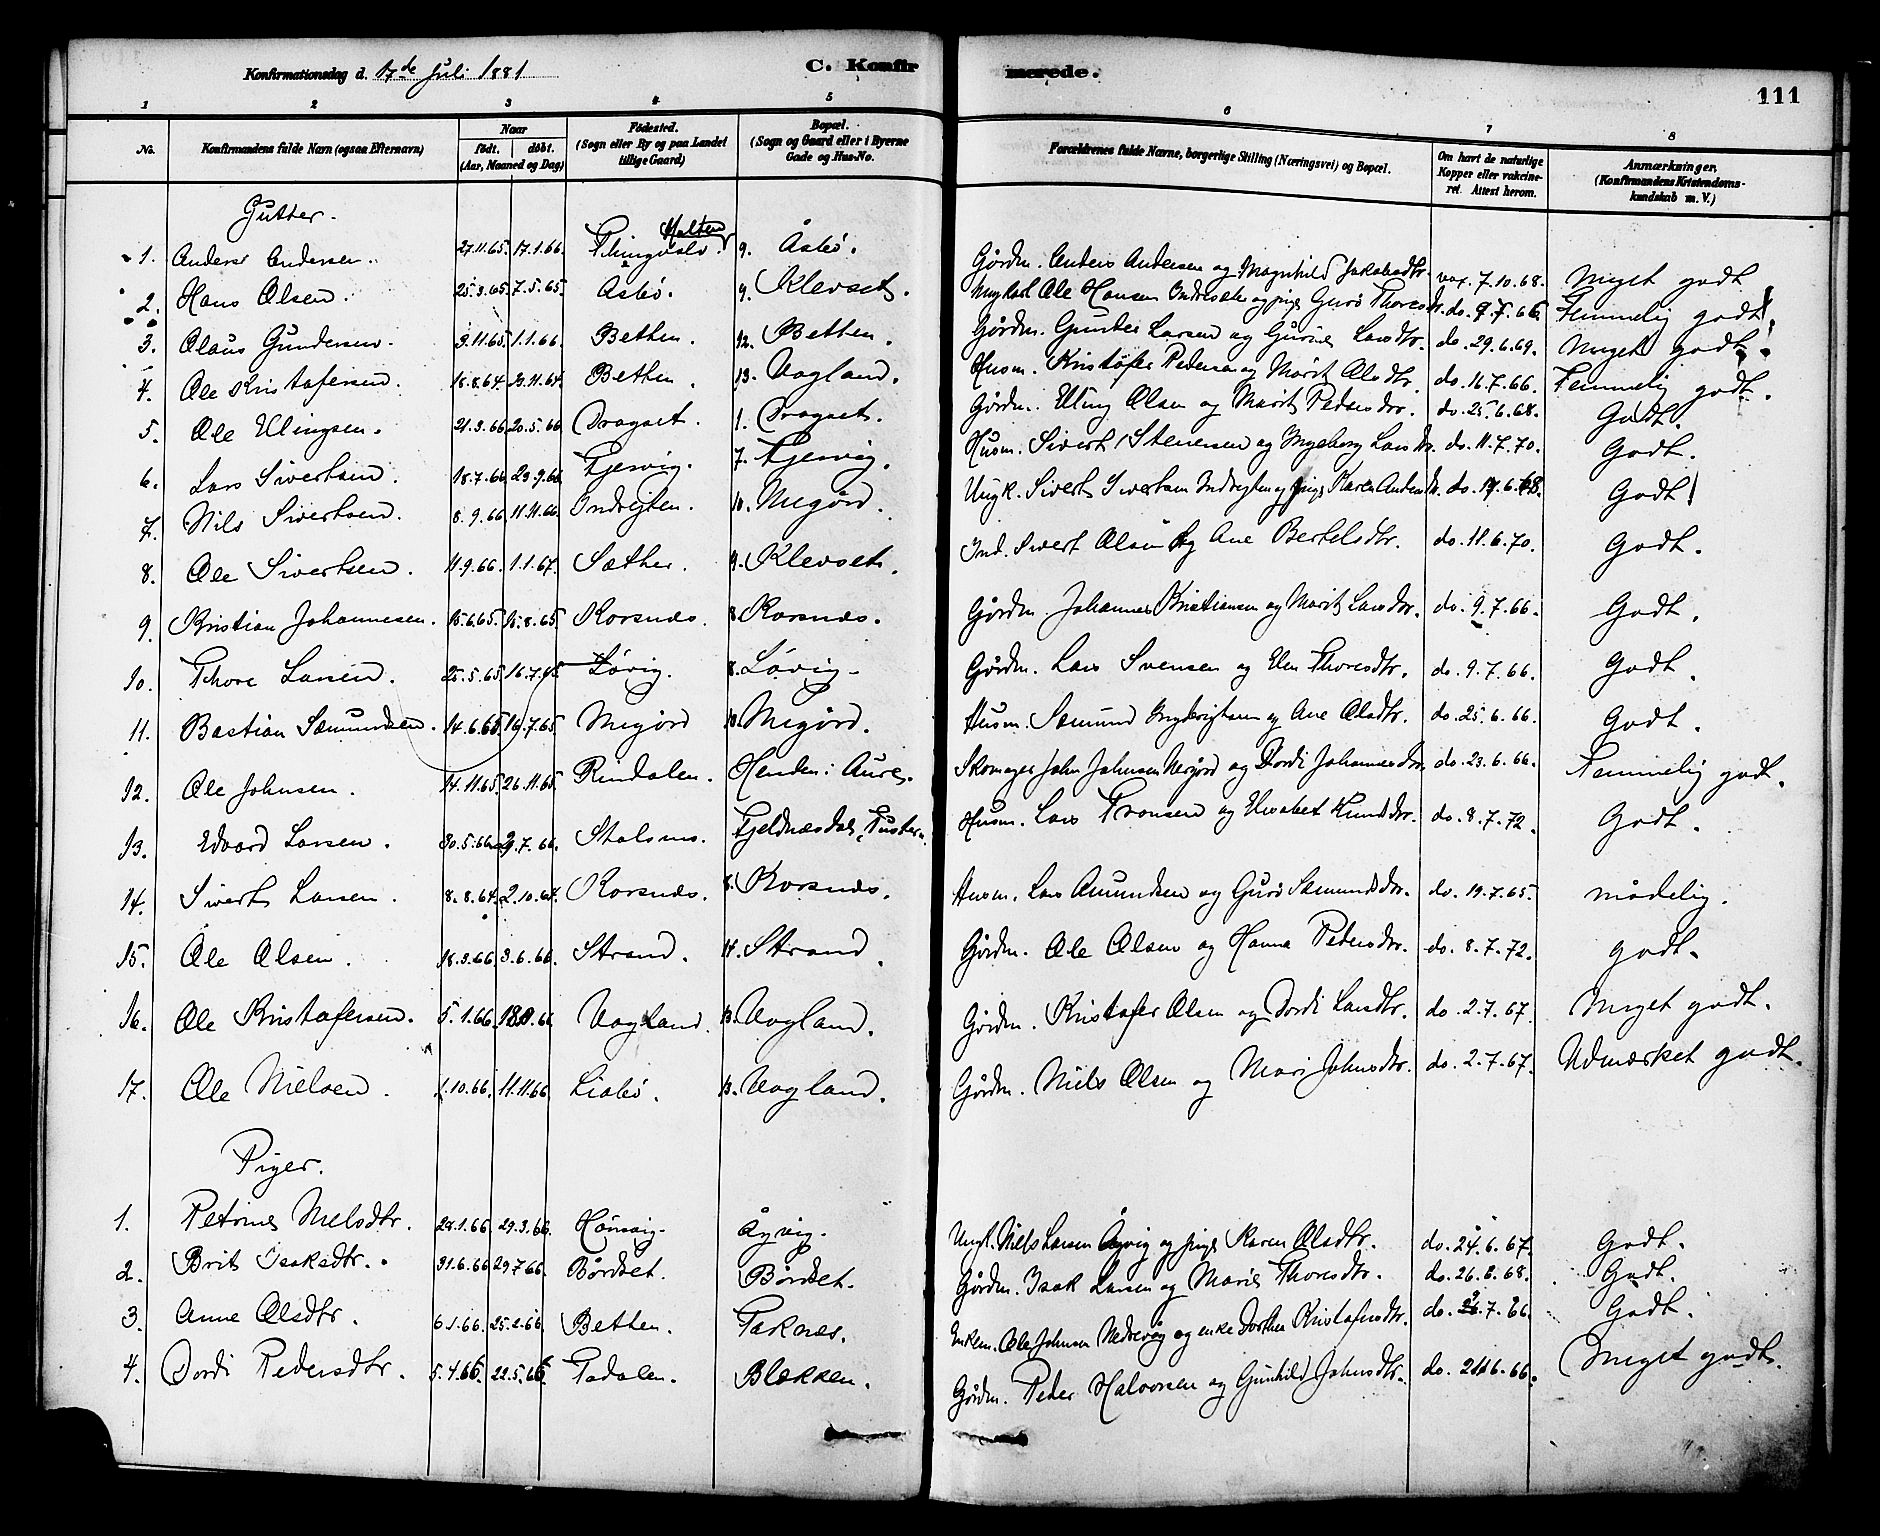 Konfirmationsdag d. 17de Juli 1881
C. Konfirmerede.
111
1 2 3 4 5 6 7 8
No. Konfirmandens fulde Navn (ogsaa Efternavn) Naar født. døbt. (Aar, Maaned og Dag) Fødested. (Sogn eller By og paa Landet tillige Gaard) Bopæl. (Sogn og Gaard eller i Byerne Gade og Hus-No. Forældrenes fulde Navne, borgerlige Stilling (Næringsvei) og Bopæl. Om havt de naturlige Kopper eller vakcineret. Attest herom. Anmærkninger. (Konfirmandens Kristendomskundskab m. V.)
Gutter.
1. Anders Andersen. 27.11.65. 17.1.66. Halten 9. Åsbø. Gårdm. Anders Andersen og Magnhild Jakobsdtr. vax. 7.10.68. Meget godt
2. Hans Olsen. 25.3.65. 7.5.65. Åsbø. 9. Klevset. Ungkarl Ole Hansen og pige Guro Thoresdtr. do. 9.7.66. Temmelig godt!
3. Olaus Gundersen. 3.11.65. 1.1.66. Betten. 12. Betten. Gårdm. Gunder Larsen og Larsdtr. do. 29.6.69. Meget godt.
4. Ole Kristofersen. 18.8.64. 20.11.64. Betten. 13. Vagland. Husm. Kristofer Pedersen og Marit Olsdtr. do. 16.7.66. Temmelig godt.
5. Ole Elingsen. 21.3.66 20.5.66 Dragset. 1. Dragset. Gårdm. Eling Olsen og Marit Pedersdtr. do. 25.6.68. Godt.
6. Lars Sivertsen. 18.7.66 23.9.66 Fjervig. 7. Fjervig. Husm. Sivert Stenersen og Ingeborg Larsdtr. do. 11.7.70. Godt.
7. Nils Sivertsen. 8.9.66 11.11.66. Indregten. 10. Megård. Ungk. Sivert Sivertsen Indregten og pige Karen Andersdtr. do. Godt!
8. Ole Sivertsen. 11.9.66. 1.1.67. Sæther. 9. Klevset. Ind. Sivert Olsen og Ane Bertelsdtr. do. 11.6.70. Godt.
9. Kristian Johannesen. 15.6.65. 15.8.65. Korsnes. 8. Korsnes. Gårdm. Johannes Kristiansen og Marit Larsdtr. do. 9.7.66. Godt.
10. Thore Larsen. 25.5.65. 16.7.65. Løvig. 8. Løvig. Gårdm. Lars Svensen og Elen Thoresdtr. do. 9.7.66. Godt.
11. Bastian Sæmundsen. 14.6.65. 16.7.65. Megård 10. Megård. Husm. Sæmund Ingebrigtsen og Ane Olsdtr. do. 25.6.66. Godt.
12. Ole Johnsen. 14.11.65. 26.11.65. Rindalen. Henden i Aure. Skomager John Johnsen og Dordi Johannesdtr. do. 23.6.66. Temmelig godt.
13. Edvard Larsen. 30.5.66. 29.7.66. Stalsnes. Fjeldnesdal, Tustern. Husm. Lars Tronsen og Elisabet Knudsdtr. do. 8.7.72. Godt.
14. Sivert Larsen. 8.8.64. 2.10.64. Korsnes. 8. Korsnes. Husm. Lars Amundsen og Guro Sæmundsdtr. do. 19.7.65. mådelig.
15. Ole Olsen. 18.3.66. 3.6.66. Strand. 14. Strand. Gårdm. Ole Olsen og Hanna Pedersdtr. do. 8.7.72. godt.
16. Ole Kristofersen. 5.1.66. 18.3.66 Vagland. 13. Vagland. Gårdm. Kristofer Olsen og Dordi Larsdtr. do. 2.7.67. Meget godt.
17. Ole Nielsen. 1.10.66. 11.11.66 Liabø. 13. Vagland. Gårdm. Niels Olsen og Mari Johnsdtr. do. 2.7.67. Udmærket godt.
Piger.
1. Petrine Nielsdtr. 28.1.66. 29.3.66. Åyvig. Ungk. Niels Larsen Åyvig og pige Karen Olsdtr. do. 24.6.67. Godt.
2. Brit Isaksdtr. 31.6.66 29.7.66. Bårdset. Bårdset. Gårdm. Isak Larsen og Marie Thoresdtr. do. 26.6.68. Godt.
3. Anne Olsdtr. 6.1.66. 25.2.66. Betten. Taknes. Enkem. Ole Johnsen Nedrevåg og enke Dorthea Kristofersdtr. do. .7.66. Godt.
4. Dordi Pedersdtr. 5.4.66. 22.5.66. Todalen. Blekken. Gårdm. Peder Halvorsen og Gunhild Johnsdtr. do. Meget godt.